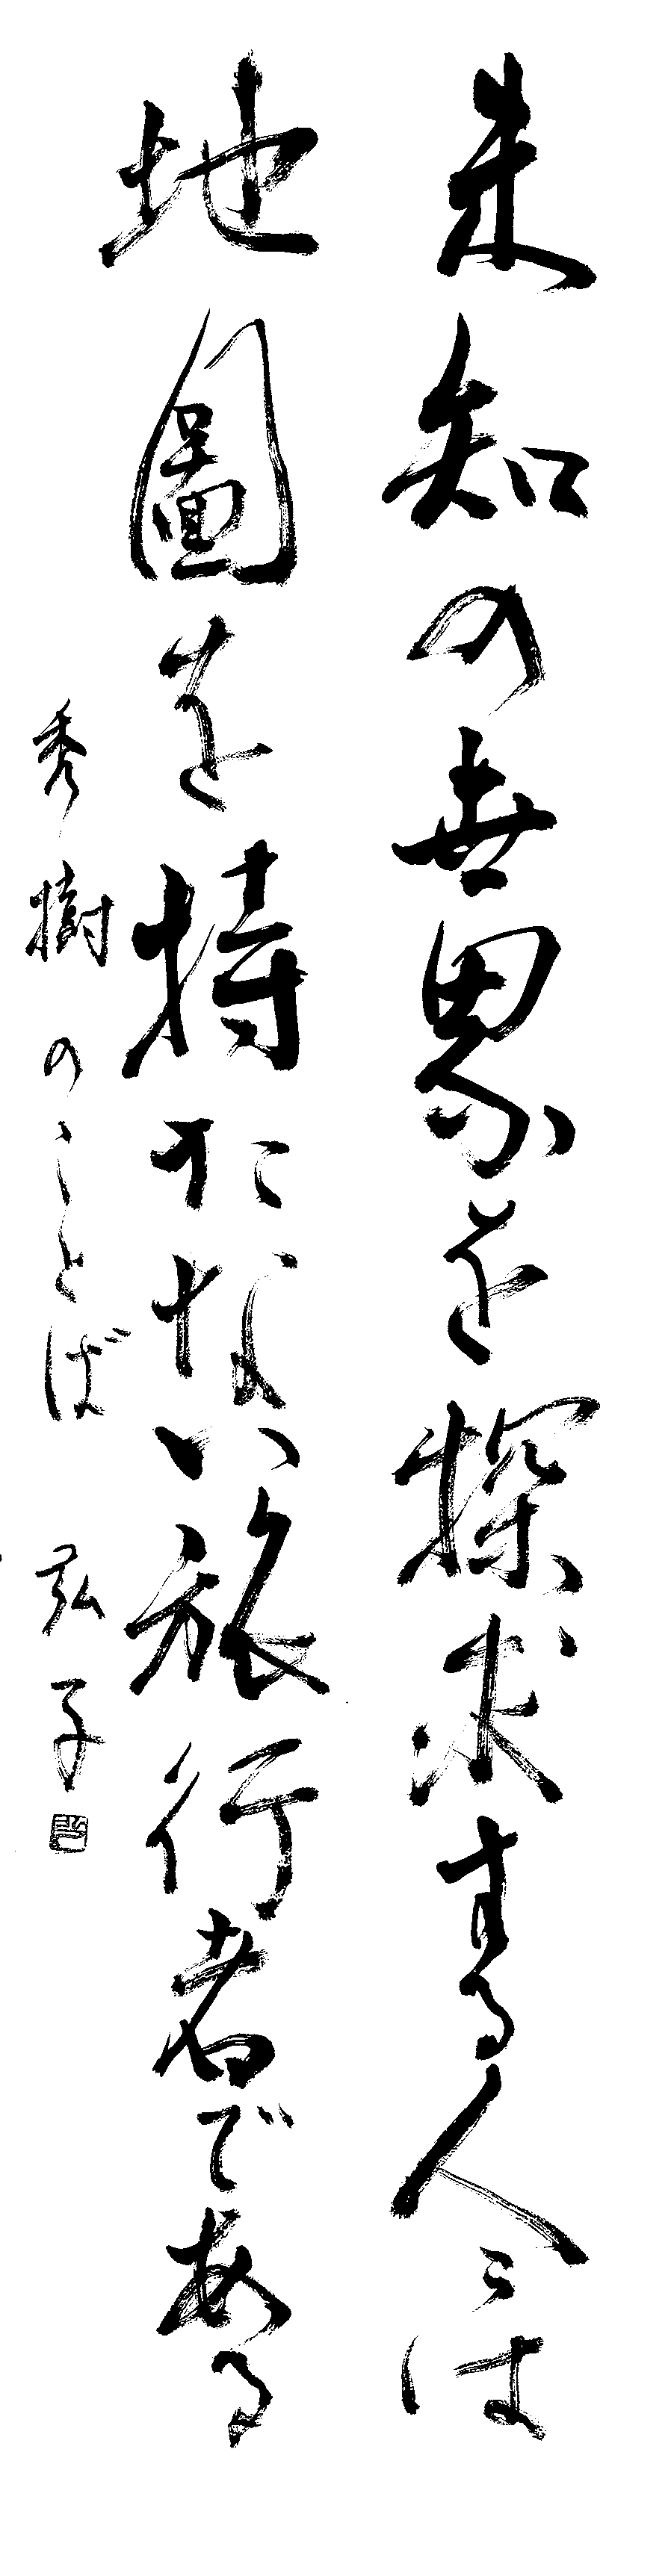 未知の世界を探求する人々は
地圖を持たない旅行者である
秀樹のことば 弘子